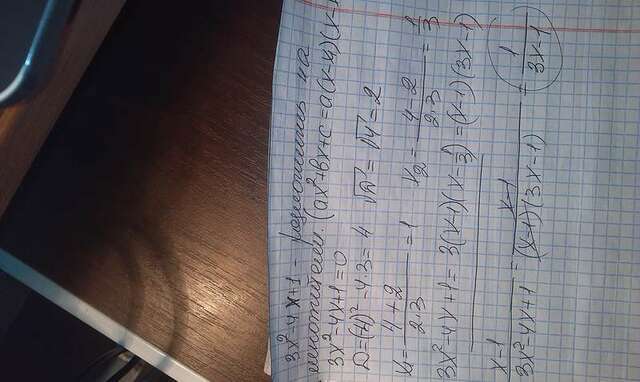 3x²-4x+1 - разложить на
множители. (ax²+bx+c=a(x-x₁)(x-
3x²-4x+1=0
D=(-4)²-4·3=4 √D=√4=2
x₁=(4+2)/(2·3)=1 x₂=(4-2)/(2·3)=1/3
3x²-4x+1=3(x-1)(x-1/3)=(x-1)(3x-1)
(x-1)/(3x²-4x+1)=(x-1)/((x-1)(3x-1))=1/(3x-1)